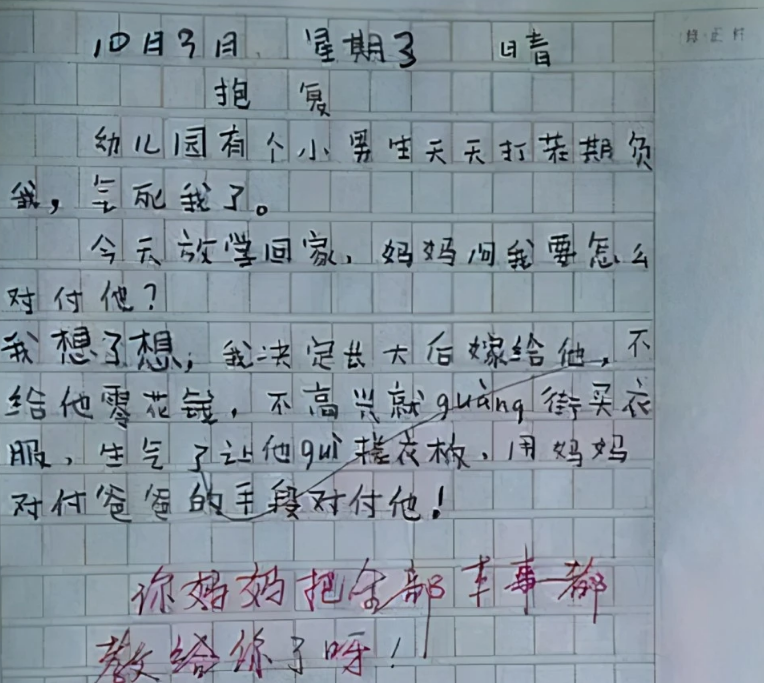 10月3日 星期3 晴
抱 复
幼儿园有个小男生天天打茬期负
我，气死我了。
今天放学回家，妈妈问我要怎么
对付他？
我想了想，我决定长大后嫁给他，不
给他零花钱，不高兴就guàng街买衣
服，生气了让他guì搓衣板，用妈妈
对付爸爸的手段对付他！
你妈妈把全部本事都
教给你了呀！